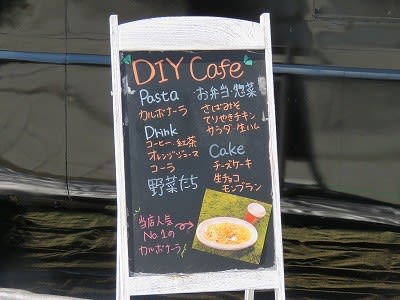 DIY Cafe
Pasta
カルボナーラ
Drink
コーヒー・紅茶
オレンジジュース
コーラ
野菜たち
お弁当・惣菜
さばみそ
てりやきチキン
サラダ・生ハム
Cake
チーズケーキ
生チョコ
モンブラン
当店人気
No.1の
カルボナーラ